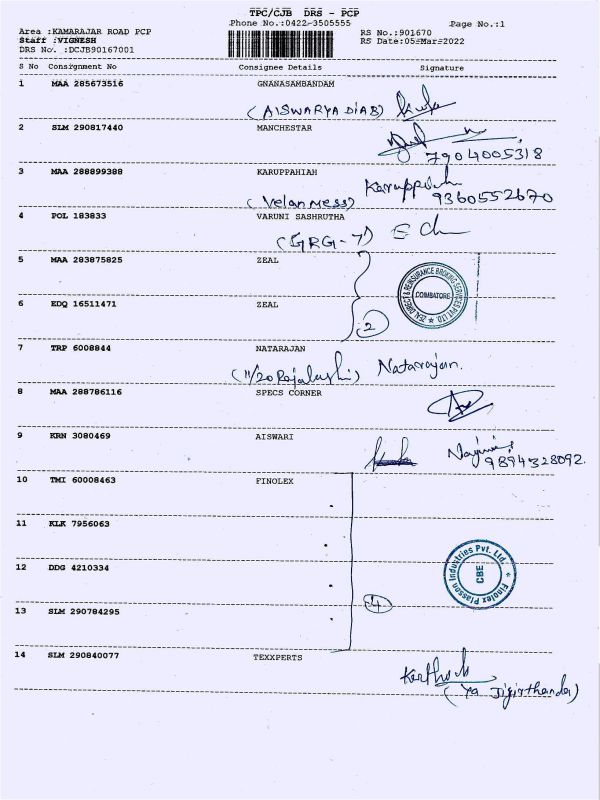 TPC/CJB DRS - PCP
Phone No.:0422-3505555
Page No.:1
Area :KAMARAJAR ROAD PCP
Staff :VIGNESH
DRS No. :DCJB90167001
RS No.:901670
RS Date:05-Mar-2022
S No Consignment No Consignee Details Signature
1 MAA 285673516 GNANASAMBANDAM
(AISWARYA DIAB)
2 SLM 290817440 MANCHESTAR
7904005318
3 MAA 288899388 KARUPPAHIAH
(Velan MESS) Karuppiah 9360552670
4 POL 183833 VARUNI SASHRUTHA
(GRG-7)
5 MAA 283875825 ZEAL
ZEAL DIRECT & REINSURANCE BROKING SERVICES PVT. LTD.
COIMBATORE
6 EDQ 16511471 ZEAL
2
7 TRP 6008844 NATARAJAN
(11/20 Rajalashi) Natarajan.
8 MAA 288786116 SPECS CORNER
9 KRN 3080469 AISWARI
9894328092.
10 TMI 60008463 FINOLEX
11 KLK 7956063
12 DDG 4210334
Finolex Plasson Industries Pvt. Ltd.
CBE
13 SLM 290784295
4
14 SLM 290840077 TEXXPERTS
(Ya Jigirthanda)